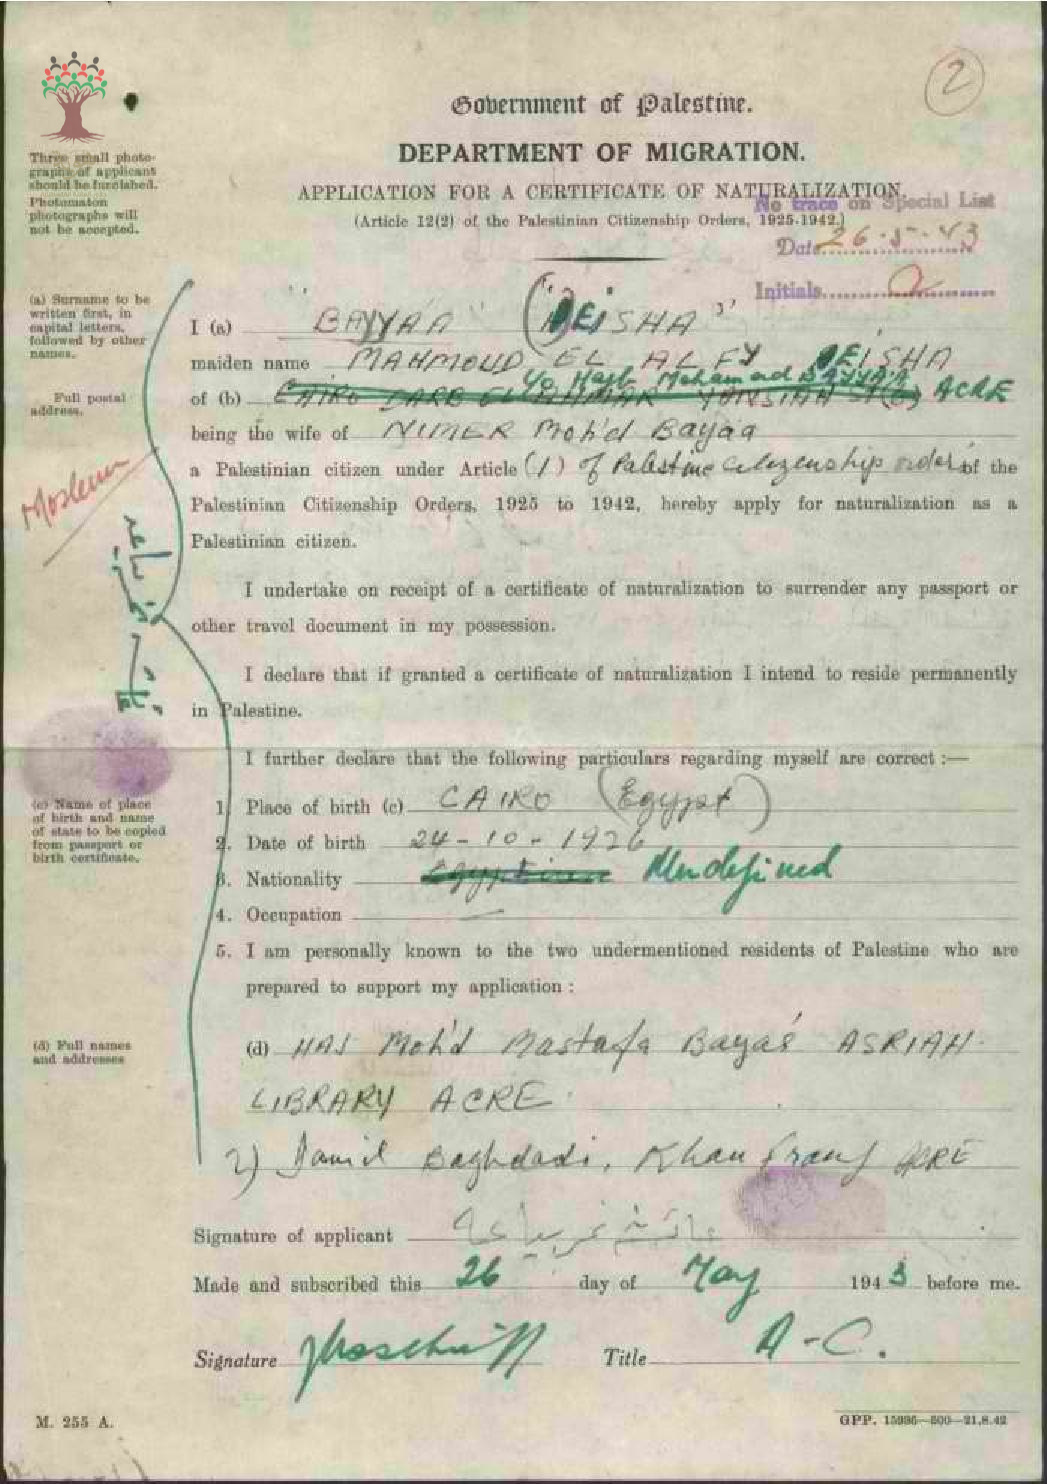 2
Government of Palestine.
DEPARTMENT OF MIGRATION.
APPLICATION FOR A CERTIFICATE OF NATURALIZATION.
(Article 12(2) of the Palestinian Citizenship Orders, 1925-1942.)
No trace on Special List
Date 26-5-43
Initials
Three small photo-
graphs of applicant
should be furnished.
Photomaton
photographs will
not be accepted.
(a) Surname to be
written first, in
capital letters,
followed by other
names.
I (a) BAYYAA EISHA
maiden name MAHMOUD EL ALFY EISHA
Full postal
address.
c/o Hajh Mohamad BAYYAA
of (b) CAIRO DARB EL AHMAR ACRE
being the wife of NIMER Moh'd Bayaa
a Palestinian citizen under Article (1) of Palestine citizenship order of the
Moslem
Palestinian Citizenship Orders, 1925 to 1942, hereby apply for naturalization as a
Palestinian citizen.
I undertake on receipt of a certificate of naturalization to surrender any passport or
other travel document in my possession.
I declare that if granted a certificate of naturalization I intend to reside permanently
in Palestine.
I further declare that the following particulars regarding myself are correct :—
(c) Name of place
of birth and name
of state to be copied
from passport or
birth certificate.
1. Place of birth (c) CAIRO (Egypt)
2. Date of birth 24-10-1926
3. Nationality Egyptian Undefined
4. Occupation —
5. I am personally known to the two undermentioned residents of Palestine who are
prepared to support my application :
(d) Full names
and addresses
(d) HAJ Moh'd Mastafa Bayaá ASRIAH
LIBRARY ACRE
2) Jamil Baghdadi, Khan ACRE
Signature of applicant
Made and subscribed this 26 day of May 1943 before me.
Signature Title A-C.
M. 255 A.
GPP. 15936—500—21.8.42